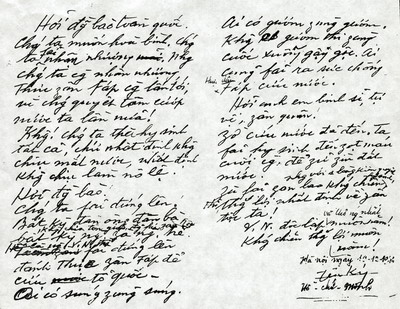 Hỡi đg bào toàn quốc.
Chg ta muốn hoà bình, chg
ta fải nhân nhượng. Nhg
chg ta cg nhân nhượng
thực zân Fáp cg lấn tới,
vì chg quyết tâm cướp
nước ta lần nữa!
Khg! chg ta thà hy sinh
tất cả, chứ nhất định khg
chịu mất nước, nhất định
khg chịu làm nô lệ.
Hỡi đg bào,
Chg ta fải đứng lên.
Bất kỳ đàn ông đàn bà,
fải đứng lên
đánh Thực zân Fáp để
cứu tổ quốc —
Ai có súng zùng súng.
Ai có gươm zùng gươm,
Khg có gươm thì zùng
cuốc xuổng gậy gộc. Ai
cũng fải ra sức chống
Fáp cứu nước.
Hỡi anh em binh sĩ, tự
vệ, zân quân.
Zờ cứu nước đã đến. Ta
fải hy sinh đến zọt máu
cuối cg, để zữ zìn đất
nước.
Zù fải zan lao kháng chiến,
thắng lợi nhất định về zân
tộc ta!
V. N. độc lập muôn năm!
Kháng chiến thắng lợi muôn
năm!
Hà nội ngày 19-12-1946
Hồ-chí-Minh